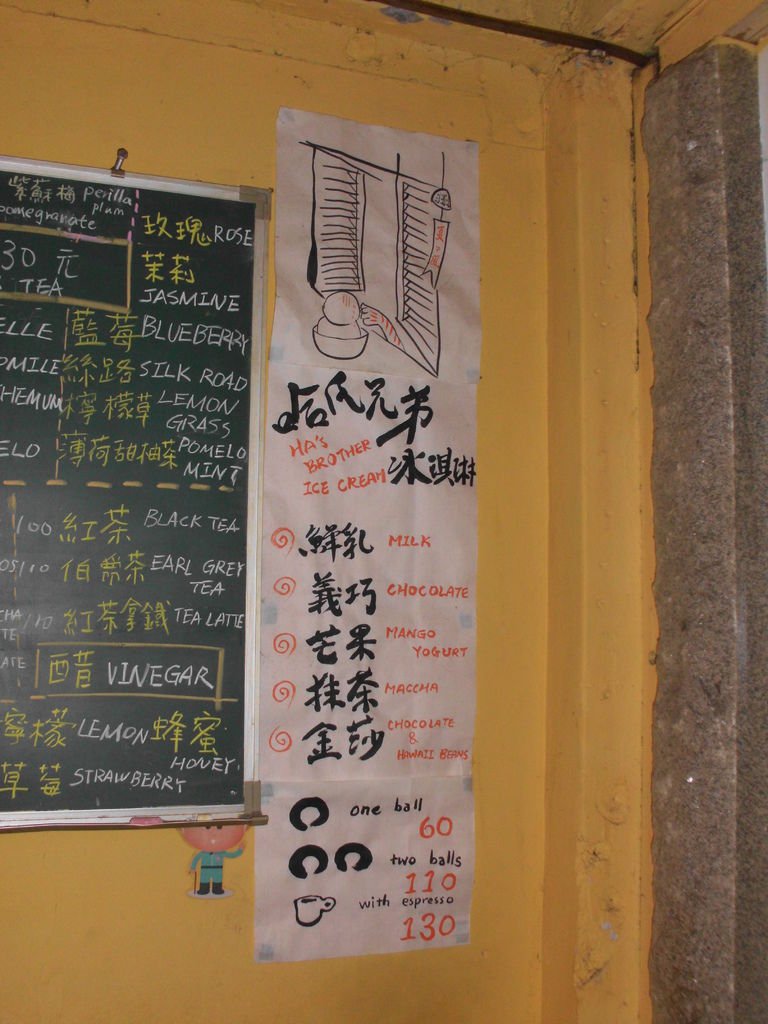 紫蘇梅 perilla
plum
pomegranate
30 元
TEA
玫瑰 ROSE
茉莉
JASMINE
藍莓 BLUEBERRY
絲路 SILK ROAD
檸檬草 LEMON
GRASS
薄荷甜柚茶 POMELO
MINT
紅茶 BLACK TEA
伯爵茶 EARL GREY
TEA
紅茶拿鐵 TEA LATTE
醋 VINEGAR
檸檬 LEMON 蜂蜜
HONEY
草莓 STRAWBERRY
哈氏兄弟
HA'S
BROTHER
ICE CREAM
冰淇淋
鮮乳 MILK
義巧 CHOCOLATE
芒果 MANGO
YOGURT
抹茶 MACCHA
金莎 CHOCOLATE
&
HAWAII BEANS
one ball
60
two balls
110
with espresso
130